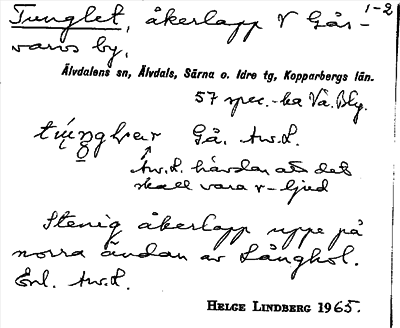 Tunglet, åkerlapp V Gås- 1-2
varvs by.
Älvdalens sn, Älvdals, Särna o. Idre tg, Kopparbergs län.
57 spec.-ka Va. Bly.
Gå. Aw.L.
Aw.L. hävdar att det
skall vara r-ljud
Stenig åkerlapp uppe på
norra ändan av Långhol.
Enl. Aw.L.
HELGE LINDBERG 1965.